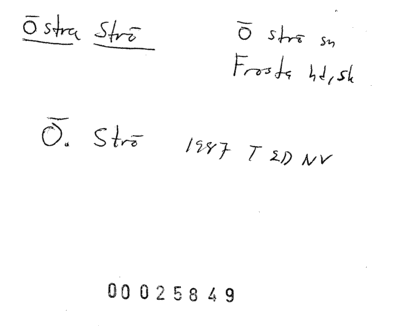 Östra Strö
Ö strö sn
Frosta hd, sk
Ö. Strö 1987 T ED NV
00025849